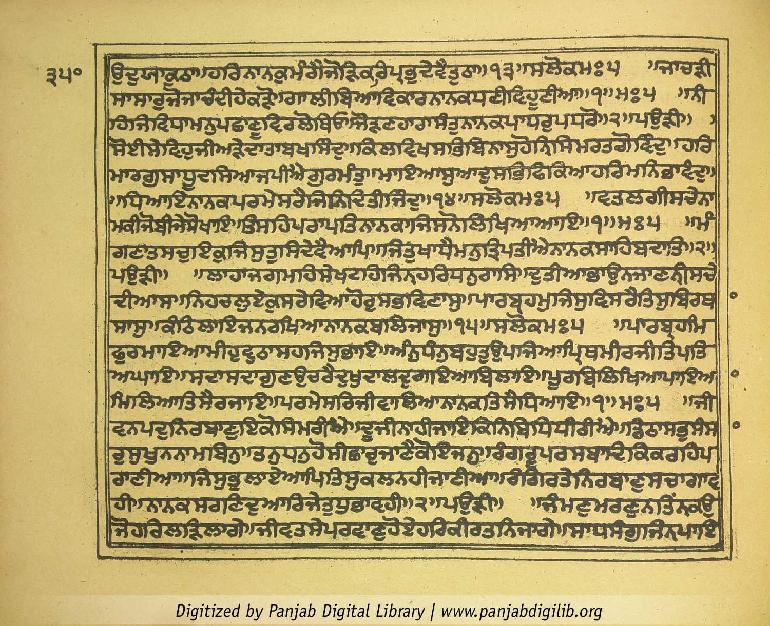 ੩੫੦
ਹਰਿਨਾਨਕੁਮੰਗੈਜੋੜਿਕਰਪ੍ਰਭੁਦੇਵੈਤੁਠਾ॥੧੩॥ਸਲੋਕਮਃ੫ ॥ਜਾਚੜੀ
ਸਾਸਾਰੁਜੋਜਾਚੰਦੀਹੇਕੜੋ॥ਗਾਲੀਬਿਆਵਿਕਾਰਨਾਨਕਧਣੀਵਿਹੂਣੀਆ॥੧॥ਮਃ੫ ॥ਨੀ
ਹਿਜਿਵਿਧਾਮਨੁਪਛਾਣੂਵਿਰਲੋਥਿਓ॥ਜੋੜਣਹਾਰਾਸੰਤੁਨਾਨਕਪਾਧਰੁਪਧਰੋ॥੨॥ਪਉੜੀ॥
ਸੋਈਸੇਵਿਹੁਜੀਅੜੇਦਾਤਾਬਖਸਿੰਦੁ॥ਕਿਲਵਿਖਸਭਿਬਿਨਾਸੁਹੋਨਿਸਿਮਰਤਗੋਵਿੰਦੁ॥ਹਰਿ
ਮਾਰਗੁਸਾਧੂਦਸਿਆਜਪੀਐਗੁਰਮੰਤੁ॥ਮਾਇਆਸੁਆਦਸਭਿਫਿਕਿਆਹਰਿਮਨਿਭਾਵੰਦੁ
॥ਧਿਆਇਨਾਨਕਪਰਮੇਸਰੈਜਿਨਿਦਿਤੀਜਿੰਦੁ॥੧੪॥ਸਲੋਕਮਃ੫ ॥ਵਤਲਗੀਸਚੇਨਾ
ਮਕੀਜੋਬੀਜੇਸੋਖਾਇ॥ਤਿਸਹਿਪਰਾਪਤਿਨਾਨਕਾਜਿਸਨੋਲਿਖਿਆਆਇ॥੧॥ਮਃ੫ ॥ਮੰ
ਗਣਾਤਸਚੁਇਕੁਜਿਸੁਤੁਸਿਦੇਵੈਆਪਿ॥ਜਿਤੁਖਾਧੈਮਨੁਤ੍ਰਿਪਤੀਐਨਾਨਕਸਾਹਿਬਦਾਤਿ॥੨॥
ਪਉੜੀ॥ ॥ਲਾਹਾਜਗਮਹਿਸੇਖਟਹਿਜਿਨਹਰਿਧਨੁਰਾਸਿ॥ਦੁਤੀਆਭਾਉਨਜਾਣਨੀਸਚੇ
ਦੀਆਸ॥ਨਿਹਚਲੁਏਕੁਸਰੇਵਿਆਹੋਰੁਸਭਵਿਣਾਸੁ॥ਪਾਰਬ੍ਰਹਮੁਜਿਸੁਵਿਸਰੈਤਿਸੁਬਿਰਥਾ
ਸਾਸੁ॥ਕੰਠਿਲਾਇਜਨਰਖਿਆਨਾਨਕਬਲਿਜਾਸੁ॥੧੫॥ਸਲੋਕਮਃ੫ ॥ਪਾਰਬ੍ਰਹਮਿ
ਫੁਰਮਾਇਆਮੀਹੁਵੁਠਾਸਹਜਿਸੁਭਾਇ॥ਅੰਨੁਧੰਨੁਬਹੁਤੁਉਪਜਿਆਪ੍ਰਿਥਮੀਰਜੀਤਿਪਤਿ
ਅਘਾਇ॥ਸਦਾਸਦਾਗੁਣਉਚਰੈਦੁਖੁਦਾਲਦੁਗਇਆਬਿਲਾਇ॥ਪੂਰਬਿਲਿਖਿਆਪਾਇਆ
ਮਿਲਿਆਤਿਸੈਰਜਾਇ॥ਪਰਮੇਸਰਿਜੀਵਾਲਿਆਨਾਨਕਤਿਸੈਧਿਆਇ॥੧॥ਮਃ੫ ॥ਜੀ
ਵਨਪਦੁਨਿਰਬਾਣੁਇਕੋਸਿਮਰੀਐ॥ਦੂਜੀਨਾਹੀਜਾਇਕਿਨਿਬਿਧਿਧੀਰੀਐ॥ਡਿਠਾਸਭੁਸੰਸਾ
ਰੁਸੁਖੁਨਨਾਮਬਿਨੁ॥ਤਨੁਧਨੁਹੋਸੀਛਾਰੁਜਾਣੈਕੋਇਜਨੁ॥ਰੰਗਰੂਪਰਸਬਾਦਿਕਿਕਰਹਿਪ
ਰਾਣੀਆ॥ਜਿਸੁਭੁਲਾਏਆਪਿਤਿਸੁਕਲਨਹੀਜਾਣੀਆ॥ਰੰਗਿਰਤੇਨਿਰਬਾਣੁਸਚਾਗਾਵ
ਹੀ॥ਨਾਨਕਸਰਣਿਦੁਆਰਿਜੇਤੁਧੁਭਾਵਹੀ॥੨॥ਪਉੜੀ॥ ॥ਜੰਮਣੁਮਰਣੁਨਤਿੰਨਕਉ
ਜੋਹਰਿਲੜਿਲਾਗੇ॥ਜੀਵਤਸੇਪਰਵਾਣੁਹੋਏਹਰਿਕੀਰਤਨਿਜਾਗੇ॥ਸਾਧਸੰਗੁਜਿਨਪਾਇ
Digitized by Panjab Digital Library | www.panjabdigilib.org